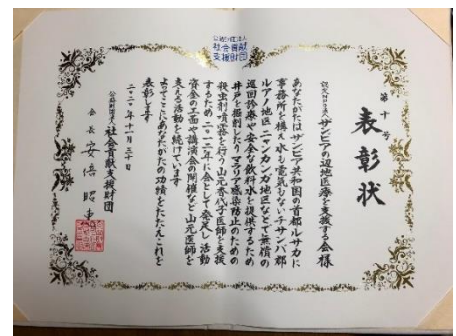 公益財団法人
社会貢献
支援財団
第十号
表彰状
ザンビアの辺地医療を支援する会 様
あなたがたはザンビア共和国の首都ルサカに
事務所を構え水も電気もないチサンバ郡
ルアノ地区ニャンカンガ地区などで無償の
巡回診療や安全な飲料水を提供するため
井戸を掘削したりマラリア感染防止のための
殺虫剤噴務を行う山元香代子医師を支援
するため二〇一二年に会として発足し活動
資金の工面や講演会の開催など山元医師を
支える活動を続けています
よってここにあなたがたの功績をたたえこれを
表彰します
公益財団法人 社会貢献支援財団
会長 安倍昭恵